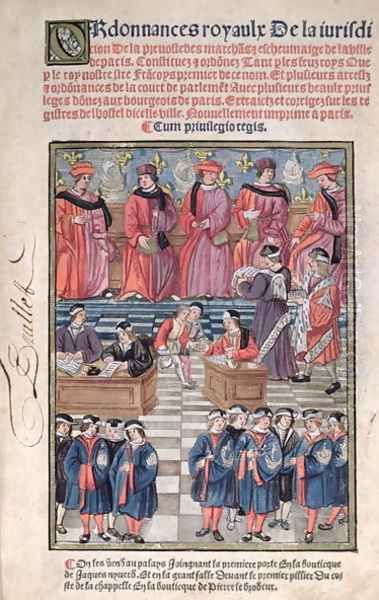 Ordonnances royaulx De la iurisdi
cion De la preuoste des marchãs ⁊ escheuinaige de la ville
de paris. Constituez ⁊ ordõnez Tant p̱ les feuz roys Que
p̱ le roy nostre sire Frãcoys premier de ce nom. Et plusieurs arrestz
⁊ ordõnances de la court de parlemẽt Auec plusieurs beaulx priui
leges dõnez aux bourgeois de paris. Extraictz et corrigez sur les re
gistres de lhostel dicelle ville. Nouuellement imprime a paris.
¶ Cum priuilegio regis.
Baillet
¶ On les vẽd au palays Joingnant la premiere porte En la bouticque
de Jaques nyuerd. Et en la grant salle Deuant le premier pillier Du co
ste de la chappelle En la bouticque de Pierre le brodeux.